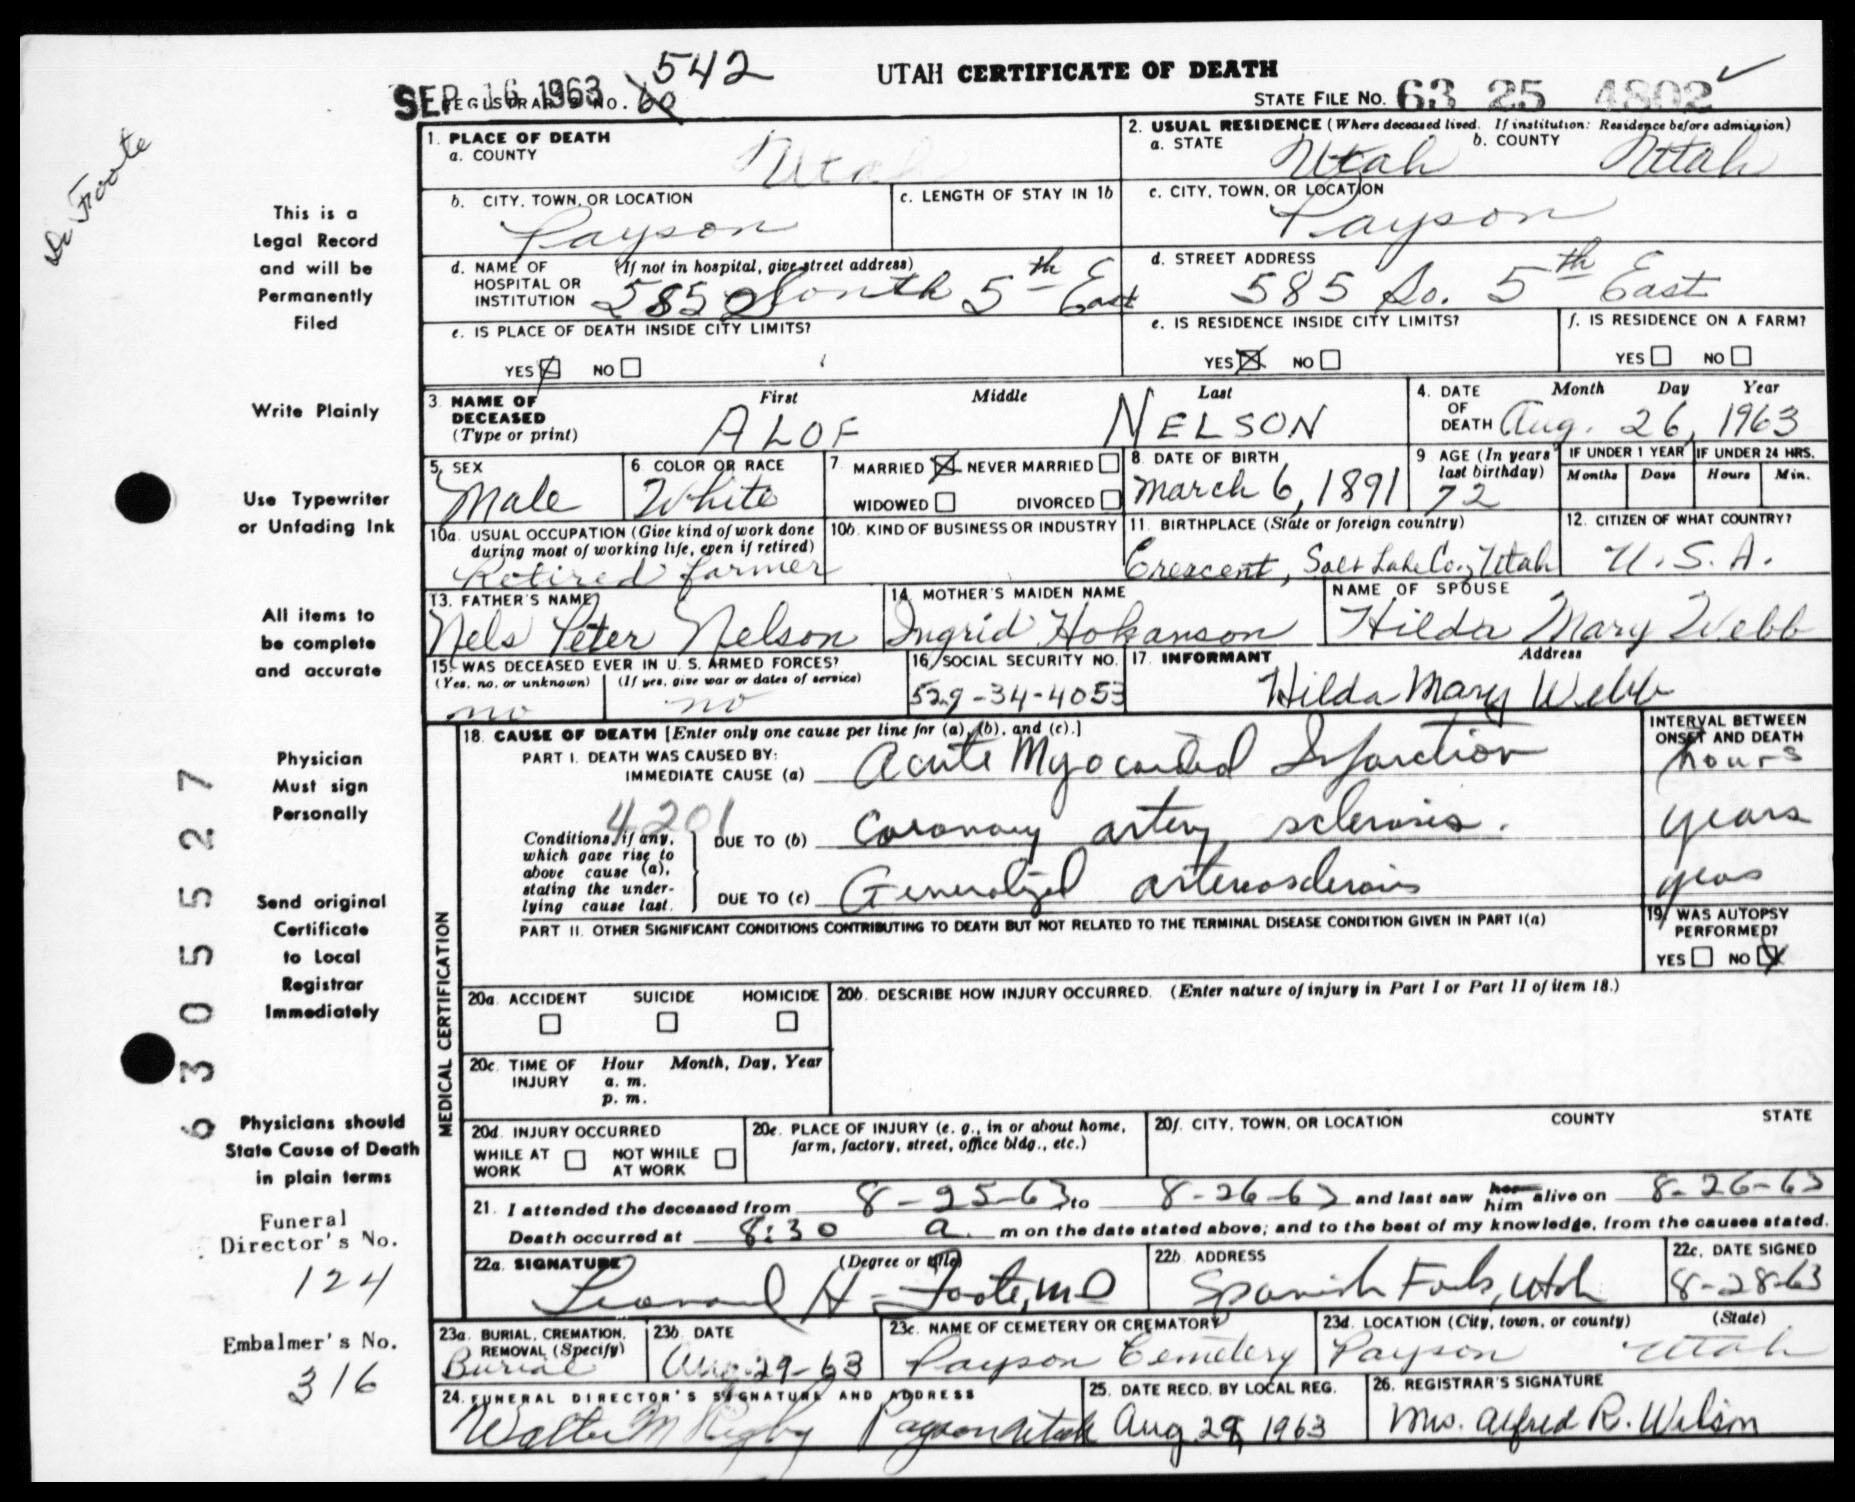 542
UTAH CERTIFICATE OF DEATH
SEP 16 1963
REGISTRAR'S NO. 60
STATE FILE NO. 63 25 4802
Dr Foote
This is a
Legal Record
and will be
Permanently
Filed
Write Plainly
Use Typewriter
or Unfading Ink
All items to
be complete
and accurate
Physician
Must sign
Personally
Send original
Certificate
to Local
Registrar
Immediately
Physicians should
State Cause of Death
in plain terms
Funeral
Director's No.
124
Embalmer's No.
316
63055527
1. PLACE OF DEATH
a. COUNTY
Utah
2. USUAL RESIDENCE (Where deceased lived. If institution: Residence before admission)
a. STATE Utah b. COUNTY Utah
b. CITY, TOWN, OR LOCATION
Payson
c. LENGTH OF STAY IN 1b
c. CITY, TOWN, OR LOCATION
Payson
d. NAME OF (If not in hospital, give street address)
HOSPITAL OR
INSTITUTION 585 South 5th East
d. STREET ADDRESS
585 So. 5th East
e. IS PLACE OF DEATH INSIDE CITY LIMITS?
YES NO
e. IS RESIDENCE INSIDE CITY LIMITS?
YES NO
f. IS RESIDENCE ON A FARM?
YES NO
3. NAME OF First Middle Last
DECEASED
(Type or print) ALOF NELSON
4. DATE Month Day Year
OF
DEATH Aug. 26, 1963
5. SEX
Male
6. COLOR OR RACE
White
7. MARRIED NEVER MARRIED
WIDOWED DIVORCED
8. DATE OF BIRTH
March 6, 1891
9. AGE (In years
last birthday)
72
IF UNDER 1 YEAR
Months Days
IF UNDER 24 HRS.
Hours Min.
10a. USUAL OCCUPATION (Give kind of work done
during most of working life, even if retired)
Retired farmer
10b. KIND OF BUSINESS OR INDUSTRY
11. BIRTHPLACE (State or foreign country)
Crescent, Salt Lake Co., Utah
12. CITIZEN OF WHAT COUNTRY?
U.S.A.
13. FATHER'S NAME
Nels Peter Nelson
14. MOTHER'S MAIDEN NAME
Ingrid Hokanson
NAME OF SPOUSE
Hilda Mary Webb
15. WAS DECEASED EVER IN U.S. ARMED FORCES?
(Yes, no, or unknown) (If yes, give war or dates of service)
no no
16. SOCIAL SECURITY NO.
529-34-4053
17. INFORMANT Address
Hilda Mary Webb
MEDICAL CERTIFICATION
18. CAUSE OF DEATH [Enter only one cause per line for (a), (b), and (c).]
INTERVAL BETWEEN
ONSET AND DEATH
PART I. DEATH WAS CAUSED BY:
IMMEDIATE CAUSE (a) Acute Myocardial Infarction hours
4201
Conditions, if any,
which gave rise to
above cause (a),
stating the under-
lying cause last.
DUE TO (b) Coronary artery sclerosis. years
DUE TO (c) Generalized arteriosclerosis years
PART II. OTHER SIGNIFICANT CONDITIONS CONTRIBUTING TO DEATH BUT NOT RELATED TO THE TERMINAL DISEASE CONDITION GIVEN IN PART I(a)
19. WAS AUTOPSY
PERFORMED?
YES NO
20a. ACCIDENT SUICIDE HOMICIDE
20b. DESCRIBE HOW INJURY OCCURRED. (Enter nature of injury in Part I or Part II of item 18.)
20c. TIME OF Hour Month, Day, Year
INJURY a. m.
p. m.
20d. INJURY OCCURRED
WHILE AT NOT WHILE
WORK AT WORK
20e. PLACE OF INJURY (e. g., in or about home,
farm, factory, street, office bldg., etc.)
20f. CITY, TOWN, OR LOCATION COUNTY STATE
21. I attended the deceased from 8-25-63 to 8-26-63 and last saw her him alive on 8-26-63
Death occurred at 8:30 a. m on the date stated above; and to the best of my knowledge, from the causes stated.
22a. SIGNATURE (Degree or title)
Leonard H. Foote, MD
22b. ADDRESS
Spanish Fork, Utah
22c. DATE SIGNED
8-28-63
23a. BURIAL, CREMATION,
REMOVAL (Specify)
Burial
23b. DATE
Aug 29-63
23c. NAME OF CEMETERY OR CREMATORY
Payson Cemetery
23d. LOCATION (City, town, or county) (State)
Payson Utah
24. FUNERAL DIRECTOR'S SIGNATURE AND ADDRESS
Walter M Rigby Payson Utah
25. DATE RECD. BY LOCAL REG.
Aug 29, 1963
26. REGISTRAR'S SIGNATURE
Mrs. Alfred R. Wilson